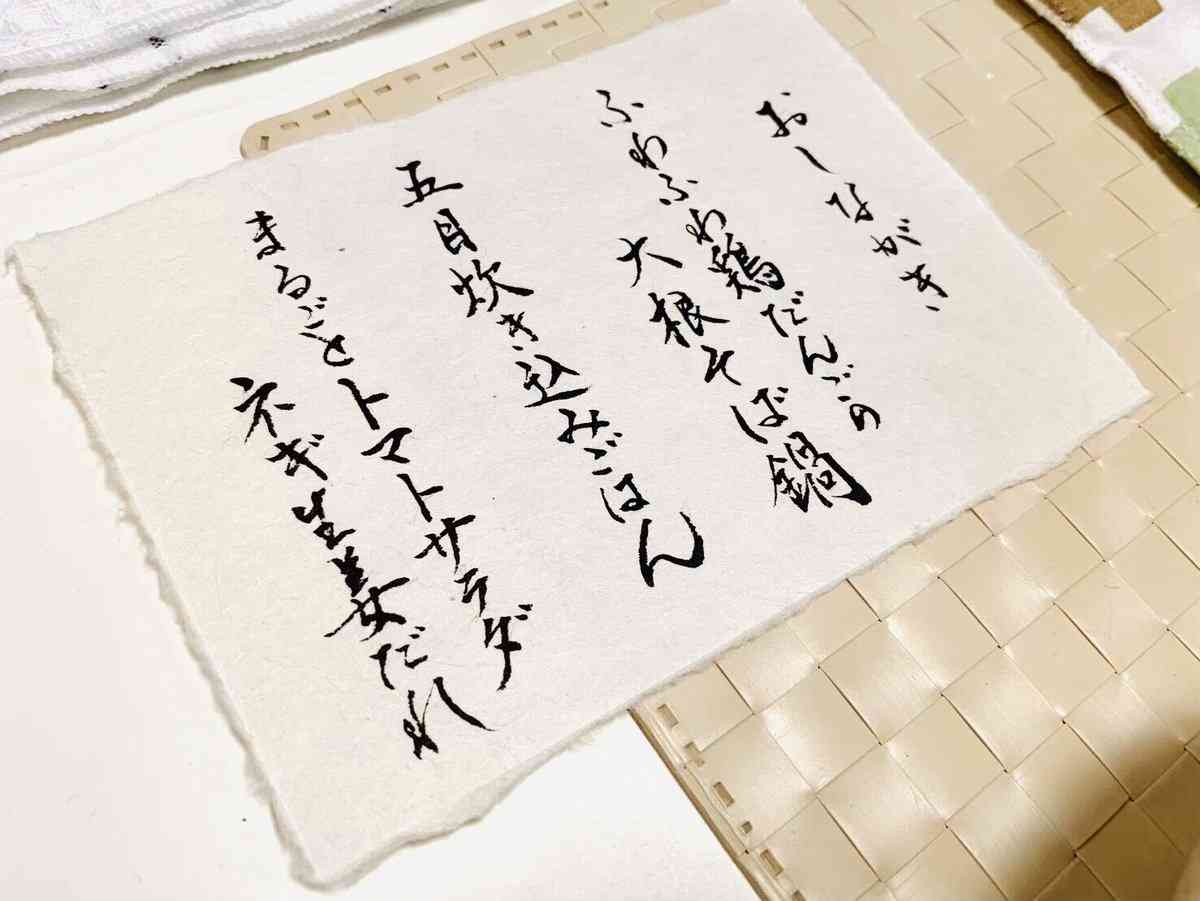 おしながき
ふわふわ鶏だんごの
大根そば鍋
五目炊き込みごはん
まるごとトマトサラダ
ネギ生姜だれ